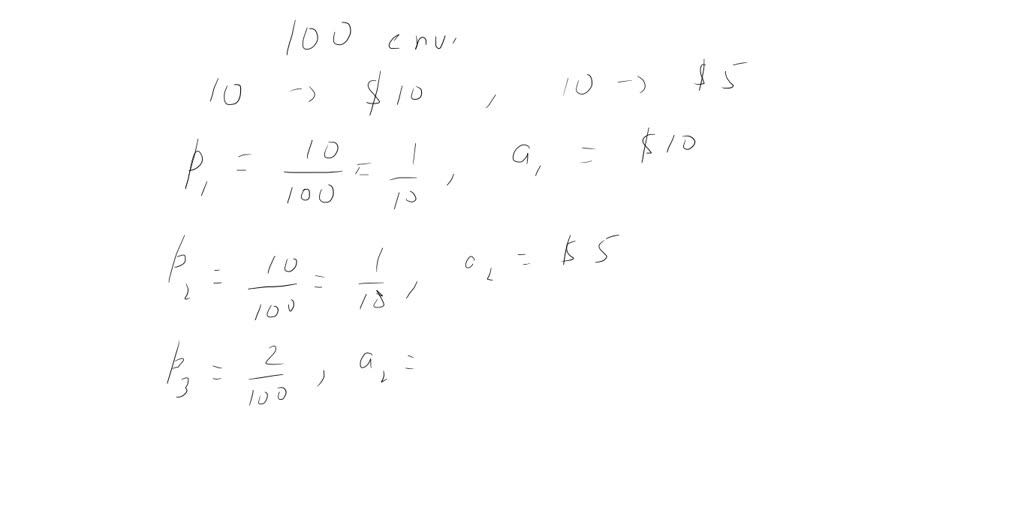 100 env.
10 → $10 , 10 → $5
p₁ = 10/100 = 1/10 , a₁ = $10
p₂ = 10/100 = 1/10 , a₂ = $5
p₃ = 2/100 , a₂ =